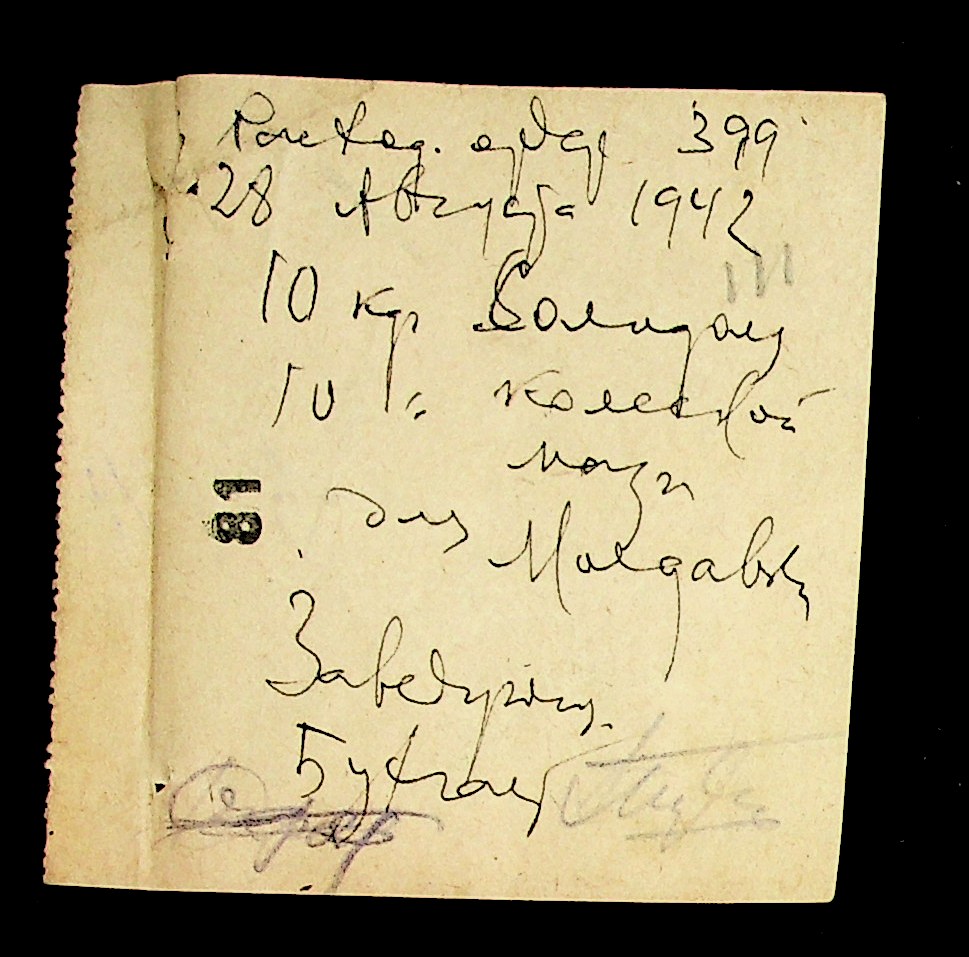 Расход. ордер 399
28 Августа 1942
10 кгр Солидолу
10 " колесной
мази
для Молдавск
Заведующ.
Бухгалт
81